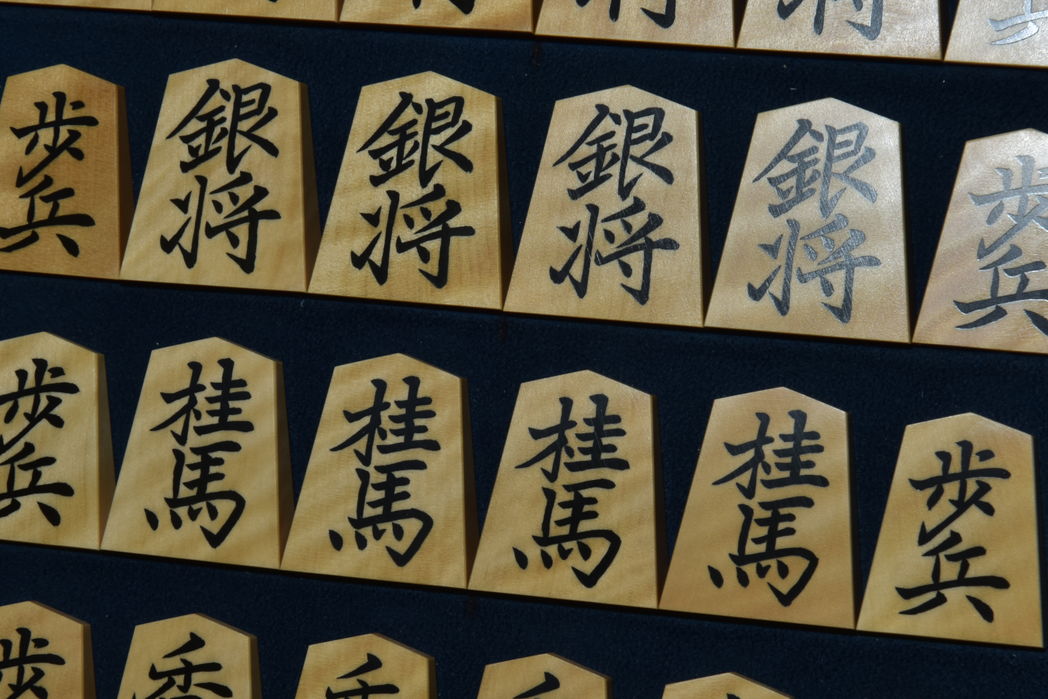 歩兵 銀将 銀将 銀将 銀将 歩兵
歩兵 桂馬 桂馬 桂馬 桂馬 歩兵
歩 香 香